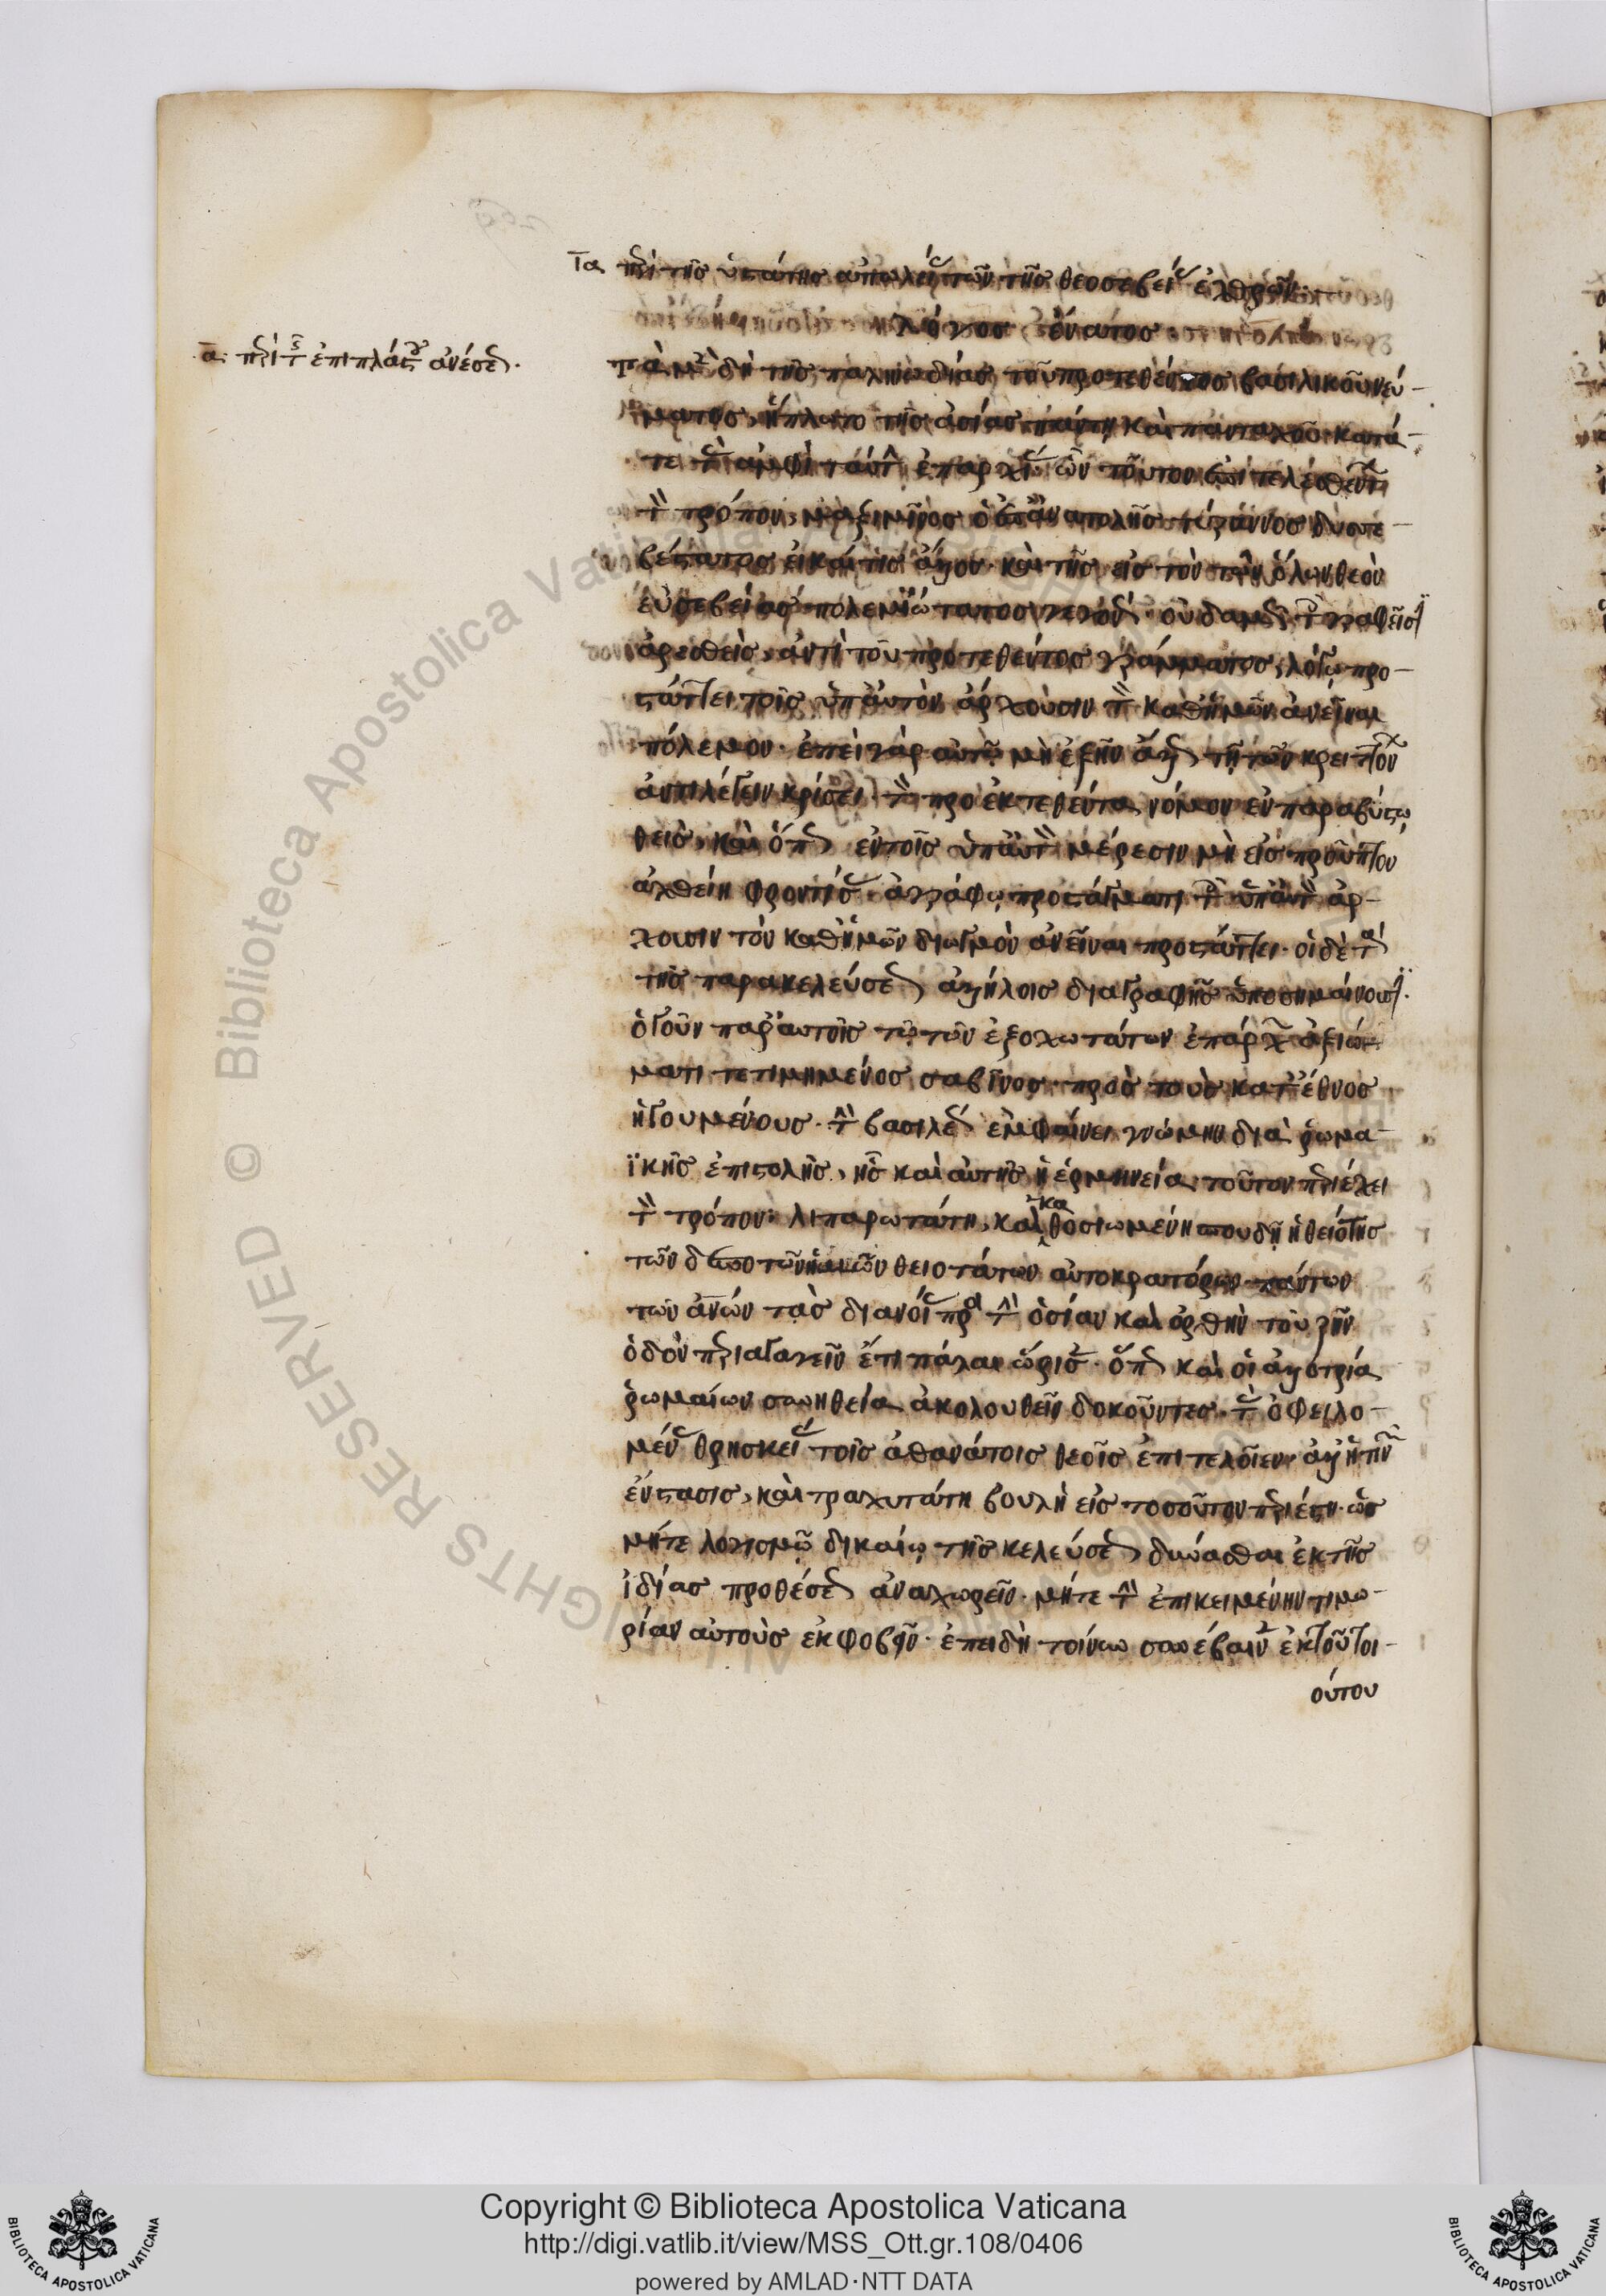 ια περὶ τῆς ὑστάτης ἀπωλείας τῶν τῆς θεοσεβείας ἐχθρῶν
λόγος ἔνατος
α περὶ τῆς ἐπιπλάστου ἀνέσεως.
Τὰ μὲν δὴ τῆς παλινωδίας τοῦ προτεθέντος βασιλικοῦ νεύ-
ματος, ἥπλωτο τῆς ἀσίας πάντη καὶ πανταχοῦ κατά
τε τὰς ἀμφὶ ταύτην ἐπαρχίας· ὧν τοῦτον ἐπιτελεσθέντων
τὸν τρόπον, μαξιμῖνος ὁ ἐπ' ἀνατολῆς τύραννος δυσσε-
βέστατος εἰ καί τις ἄλλος· καὶ τῆς εἰς τὸν τῶν ὅλων θεὸν
εὐσεβείας πολεμιώτατος γεγονώς· οὐδαμῶς τοῖς γραφεῖσιν
ἀρεσθεὶς, ἀντὶ τοῦ προτεθέντος γράμματος, λόγῳ προ-
στάττει τοῖς ὑπ' αὐτὸν ἄρχουσιν τὸν καθ' ἡμῶν ἀνεῖναι
πόλεμον· ἐπεὶ γὰρ αὐτῷ μὴ ἐξῆν ἄλλως τῇ τῶν κρειττόνων
ἀντιλέγειν κρίσει· τὸν προεκτεθέντα νόμον ἐν παραβύστῳ
θεὶς, καὶ ὅπως ἐν τοῖς ὑπ' αὐτὸν μέρεσιν μὴ εἰς προὖπτον
ἀχθείη φροντίσας· ἀγράφῳ προστάγματι τοῖς ὑπ' αὐτὸν ἄρ-
χουσιν τὸν καθ' ἡμῶν διωγμὸν ἀνεῖναι προστάττει· οἱ δὲ τὰ
τῆς παρακελεύσεως ἀλλήλοις διὰ γραφῆς ὑποσημαίνουσιν.
ὁ γοῦν παρ' αὐτοῖς τῷ τῶν ἐξοχωτάτων ἐπάρχων ἀξιώ-
ματι τετιμημένος σαβῖνος· πρὸς τοὺς κατ' ἔθνος
ἡγουμένους· τὴν βασιλέως ἐμφαίνει γνώμην διὰ ῥωμα-
ϊκῆς ἐπιστολῆς, ἧς καὶ αὐτῆς ἡ ἑρμηνεία τοῦτον περιέχει
τὸν τρόπον: λιπαρωτάτῃ, καὶ καθοσιωμένῃ σπουδῇ ἡ θειότης
τῶν δεσποτῶν ἡμῶν θειοτάτων αὐτοκρατόρων πάντων
τῶν ἀνων τὰς διανοίας πρὸς τὴν ὁσίαν καὶ ὀρθὴν τοῦ ζῆν
ὁδὸν περιαγαγεῖν ἔτι πάλαι ὥρισεν· ὅπως καὶ οἱ ἀλλοτρίᾳ
ῥωμαίων συνηθείᾳ ἀκολουθεῖν δοκοῦντες· τὰς ὀφειλο-
μένας θρησκείας τοῖς ἀθανάτοις θεοῖς ἐπιτελοῖεν· ἀλλ' ἡ τινῶν
ἔνστασις, καὶ τραχυτάτη βουλὴ εἰς τοσοῦτον περιέστη· ὡς
μήτε λογισμῷ δικαίῳ τῆς κελεύσεως δύνασθαι ἐκ τῆς
ἰδίας προθέσεως ἀναχωρεῖν· μήτε τὴν ἐπικειμένην τιμω-
ρίαν αὐτοὺς ἐκφοβεῖν· ἐπειδὴ τοίνυν συνέβαινεν ἐκ τοῦ τοι-
ούτου
Copyright © Biblioteca Apostolica Vaticana
http://digi.vatlib.it/view/MSS_Ott.gr.108/0406
powered by AMLAD·NTT DATA
BIBLIOTECA APOSTOLICA VATICANA
BIBLIOTECA APOSTOLICA VATICANA
ALL RIGHTS RESERVED © Biblioteca Apostolica Vaticana